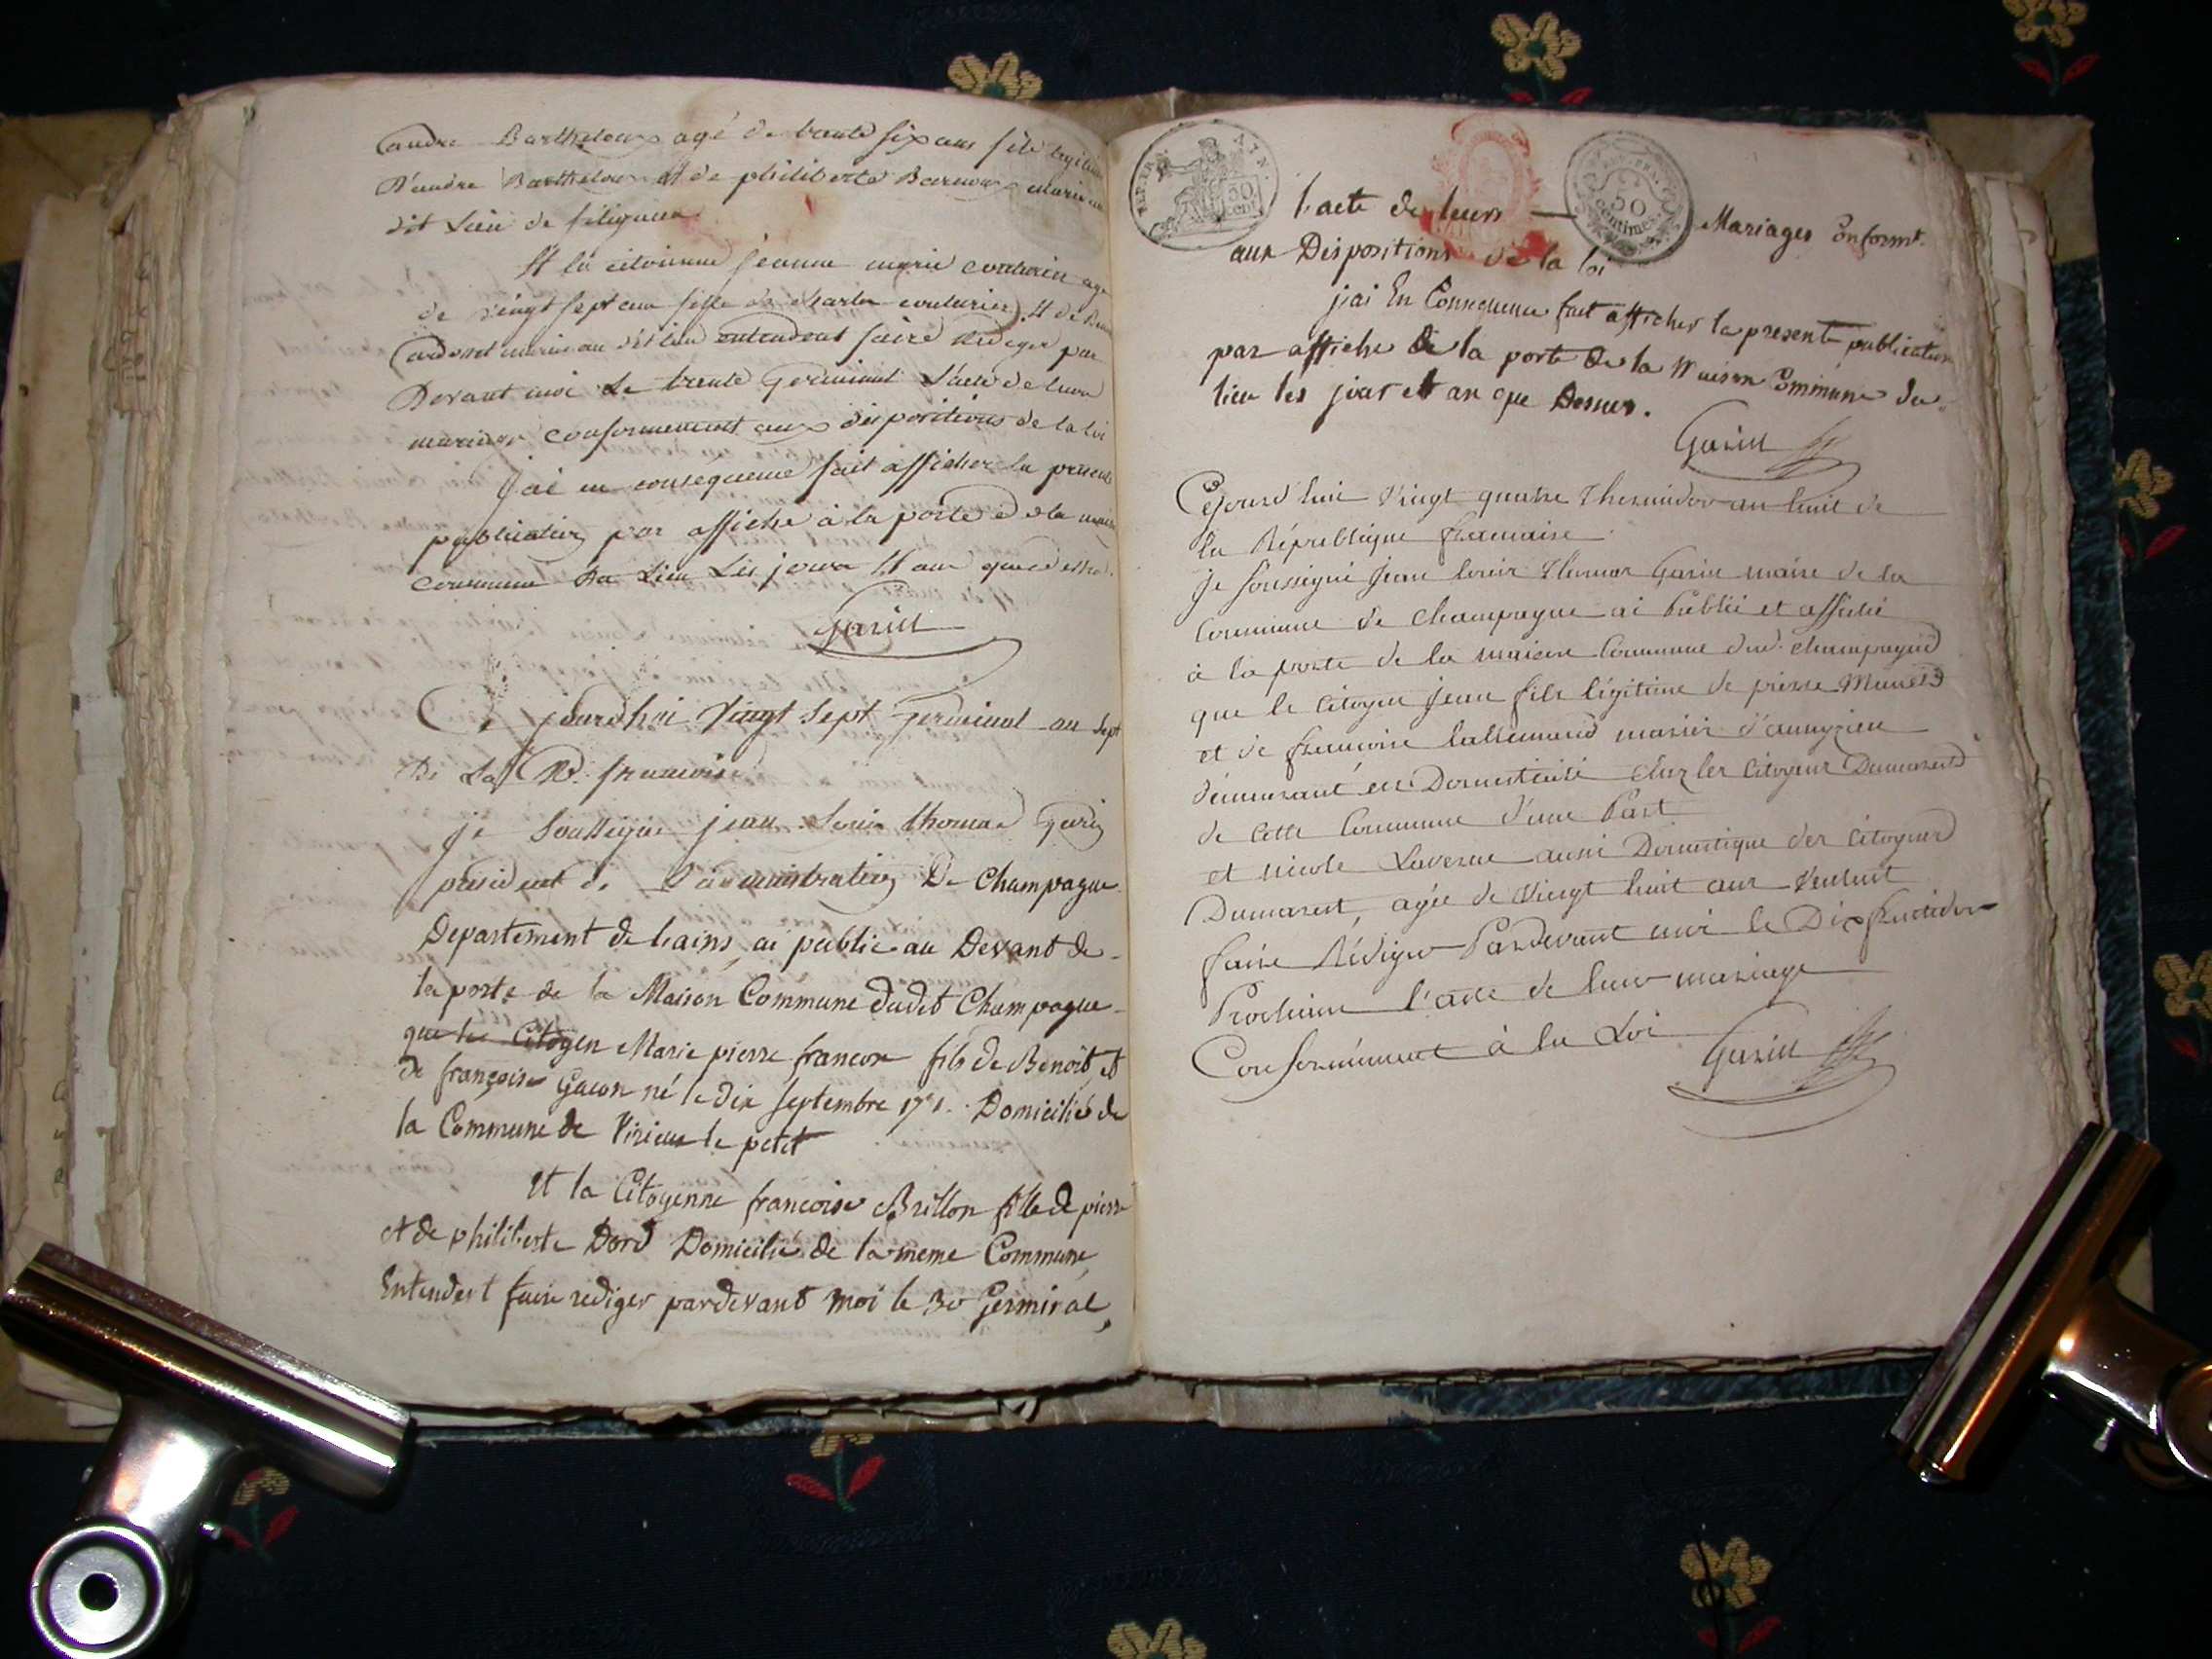 andre Barthelous agé de trente six ans fils legitime
D'andre Barthelous et de philiberte mariés au
dit Lieu de
Et la citoienne jeanne marie couturier agé
de vingt sept ans fille de charles couturier et de
mariés au dit lieu entendent faire rediger par
Devant moi Le trente Germinal L'acte de leurs
mariages conformement aux dispositions de la loi
J'ai en conséquence fait afficher la presente
publication par affiche à la porte de la maison
commune du Lieu Les jours et an que dessus.
Garin
Ce jourdhui Vingt sept Germinal an sept
De La R. francoise
je Soussigné jean Louis thomas Garin
president de L'administration De Champagne
Departement de Lains, ai publié au Devant de
la porte de la Maison Commune dudit Champagne
que le Citoyen Marie pierre francon fils de Benoit et
de françoise Gacon né le dix septembre Domicilié de
la Commune de Virieu le petit
et la Citoyenne francoise Brillon fille de pierre
et de philiberte Dord Domicilié de la meme Commune,
Entendent faire rediger pardevant moi le 30 Germinal,
REP. FRA. AIN
50 cent
50 centimes
l'acte de leurs Mariages Conformt.
aux Dispositions de la loi
j'ai En Consequence fait afficher la presente publication
par affiche de la porte de la Maison Commune du
lieu les jour et an que Dessus.
Garin
Cejourd'hui Vingt quatre Thermidor an huit de
la République francaise
Je soussigné Jean louis Thomas Garin maire de la
Commune de Champagne ai Publié et affiché
à la porte de la maison Commune dud. Champagne
que le Citoyen Jean fils légitime de pierre
et de francoise lallemand mariés
démeurant en Domesticité chez les Citoyens Dumarest
de cette Commune d'une Part
et nicole Laverne aussi Domestique des Citoyens
Dumarest, agée de Vingt huit ans Veulent
faire Rédiger Pardevant moi le Dix fructidor
Prochain l'acte de leur mariage
Conformément à la Loi
Garin